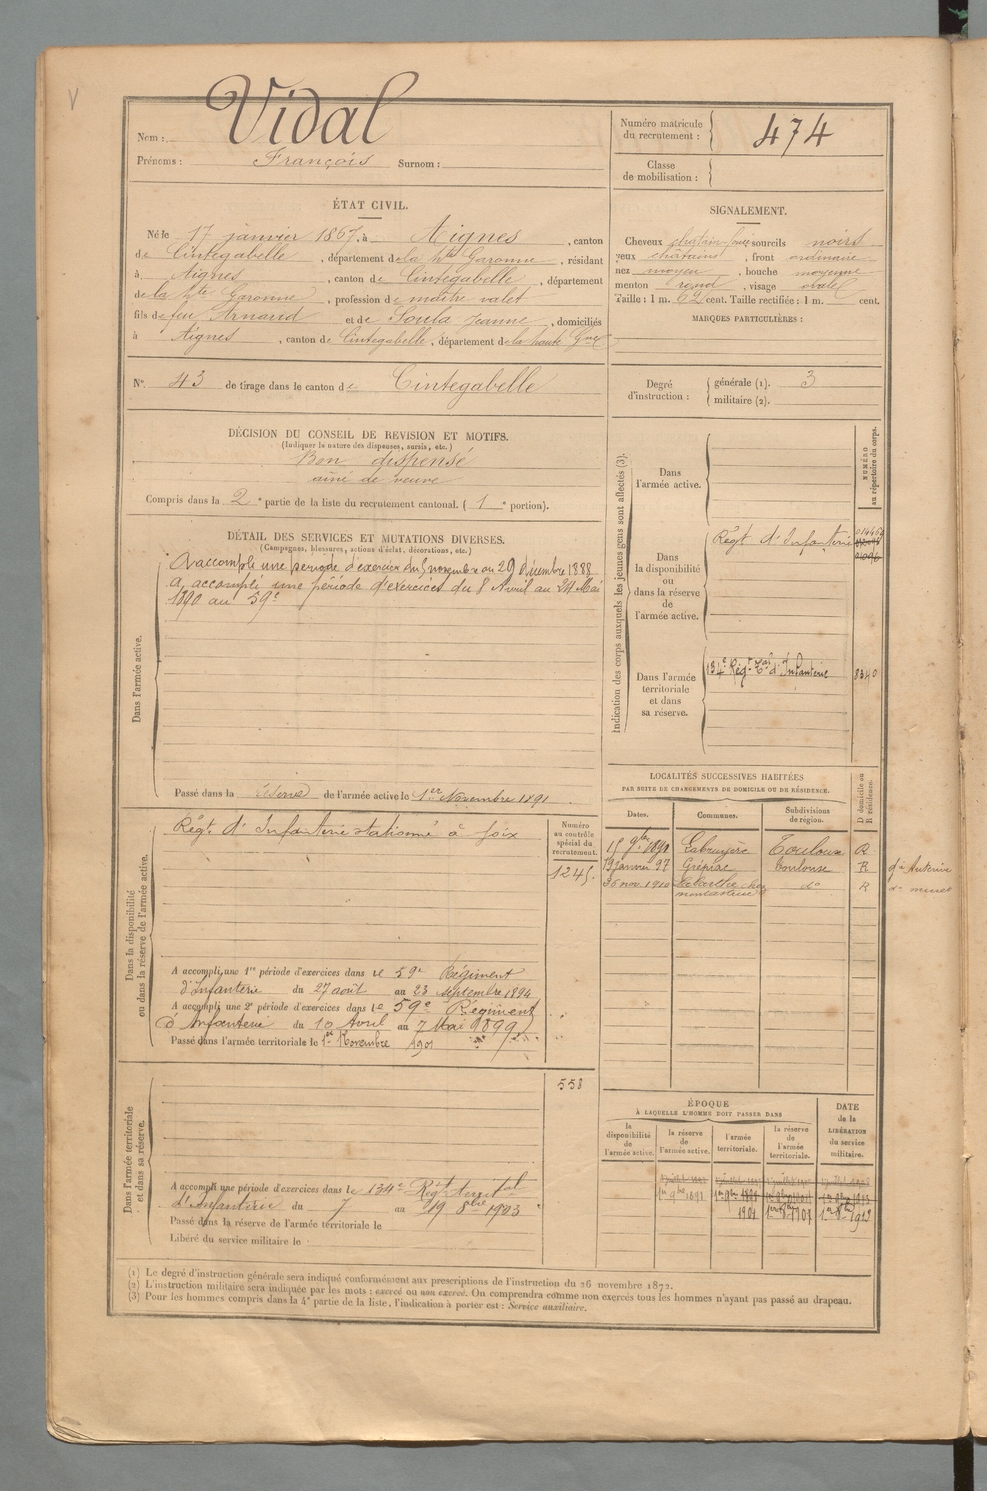 V
Nom : Vidal
Prénoms : François Surnom :
Numéro matricule du recrutement : 474
Classe de mobilisation :
ÉTAT CIVIL.
Né le 17 janvier 1867, à Aignes, canton
de Cintegabelle, département de la hte Garonne, résidant
à Aignes, canton de Cintegabelle, département
de la hte Garonne, profession de maître valet
fils de feu Arnaud et de Soula Jeanne, domiciliés
à Aignes, canton de Cintegabelle, département de la haute Gne
N° 43 de tirage dans le canton de Cintegabelle
SIGNALEMENT.
Cheveux chatain sourcils noirs
yeux chatains, front ordinaire
nez moyen, bouche moyenne
menton rond, visage ovale
Taille : 1 m. 62 cent. Taille rectifiée : 1 m. cent.
MARQUES PARTICULIÈRES :
Degré d'instruction : générale (1). 3
militaire (2).
DÉCISION DU CONSEIL DE REVISION ET MOTIFS.
(Indiquer la nature des dispenses, sursis, etc.)
Bon dispensé
ainé de veuve
Compris dans la 2e partie de la liste du recrutement cantonal. (1e portion).
DÉTAIL DES SERVICES ET MUTATIONS DIVERSES.
(Campagnes, blessures, actions d'éclat, décorations, etc.)
Dans l'armée active.
A accompli une période d'exercice du 5 novembre au 29 décembre 1888
A accompli une période d'exercices du 8 Avril au 24 Mai
1890 au 59e
Passé dans la réserve de l'armée active le 1er Novembre 1891
Indication des corps auxquels les jeunes gens sont affectés (3).
NUMÉRO au répertoire du corps.
Dans l'armée active.
Dans la disponibilité ou dans la réserve de l'armée active.
Régt d'Infanterie
Dans l'armée territoriale et dans sa réserve.
134e Régt Tal d'Infanterie 8340
Dans la disponibilité ou dans la réserve de l'armée active.
Régt d'Infanterie stationné à Foix
Numéro au contrôle spécial du recrutement.
1245.
A accompli une 1re période d'exercices dans le 59e Régiment
d'Infanterie du 27 août au 23 Septembre 1894
A accompli une 2e période d'exercices dans le 59e Régiment
d'Infanterie du 10 Avril au 7 Mai 1899
Passé dans l'armée territoriale le 1er Novembre 1901
LOCALITÉS SUCCESSIVES HABITÉES
PAR SUITE DE CHANGEMENTS DE DOMICILE OU DE RÉSIDENCE.
Dates. Communes. Subdivisions de région. D domicile ou R résidence.
15 9bre 1891 Labruyère Toulouse R
19 janvier 97 Grépiac toulouse R
nov. 1910 do R
Dans l'armée territoriale et dans sa réserve.
558
A accompli une période d'exercices dans le 134e Régt Territal
d'Infanterie du 7 au 19 8bre 1903
Passé dans la réserve de l'armée territoriale le
Libéré du service militaire le
ÉPOQUE
À LAQUELLE L'HOMME DOIT PASSER DANS
la disponibilité de l'armée active.
la réserve de l'armée active.
l'armée territoriale.
la réserve de l'armée territoriale.
DATE de la LIBÉRATION du service militaire.
1er 9bre 1891
1901
(1) Le degré d'instruction générale sera indiqué conformément aux prescriptions de l'instruction du 26 novembre 1872.
(2) L'instruction militaire sera indiquée par les mots : exercé ou non exercé. On comprendra comme non exercés tous les hommes n'ayant pas passé au drapeau.
(3) Pour les hommes compris dans la 4e partie de la liste, l'indication à porter est : Service auxiliaire.